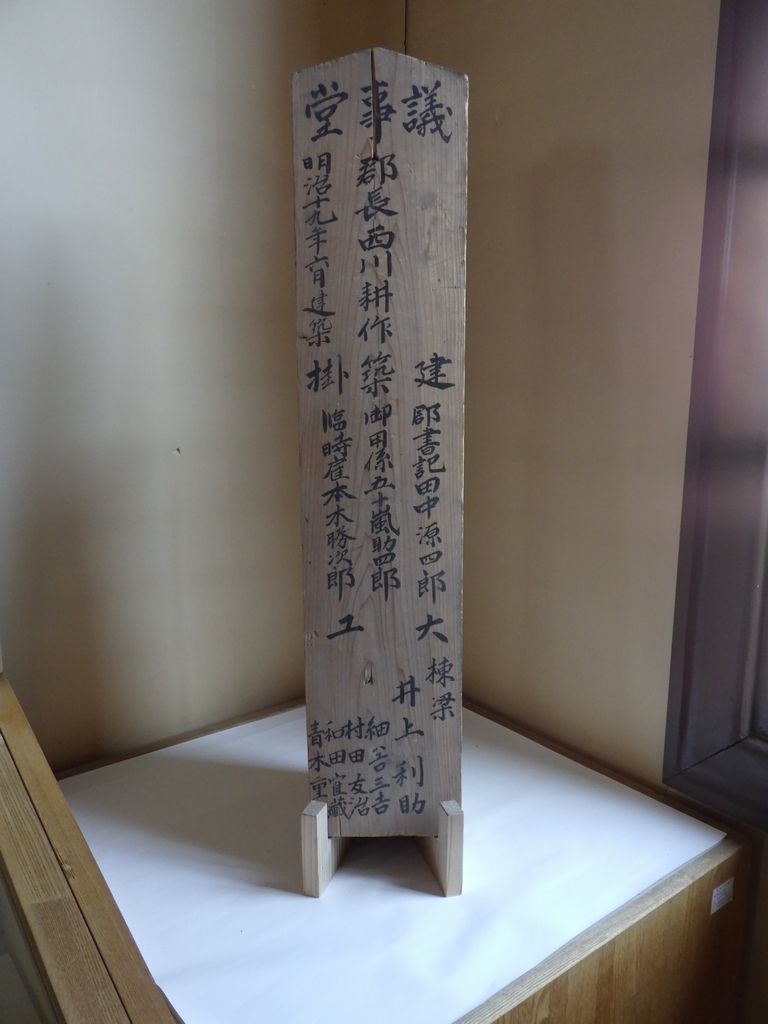 議事堂
郡長西川耕作
明治十九年六月建築
建築掛
郡書記田中源四郎
御用係五十嵐助四郎
臨時雇本木勝次郎
大工
棟梁
井上利助
細谷三吉
村田友治
和田宜蔵
青木重